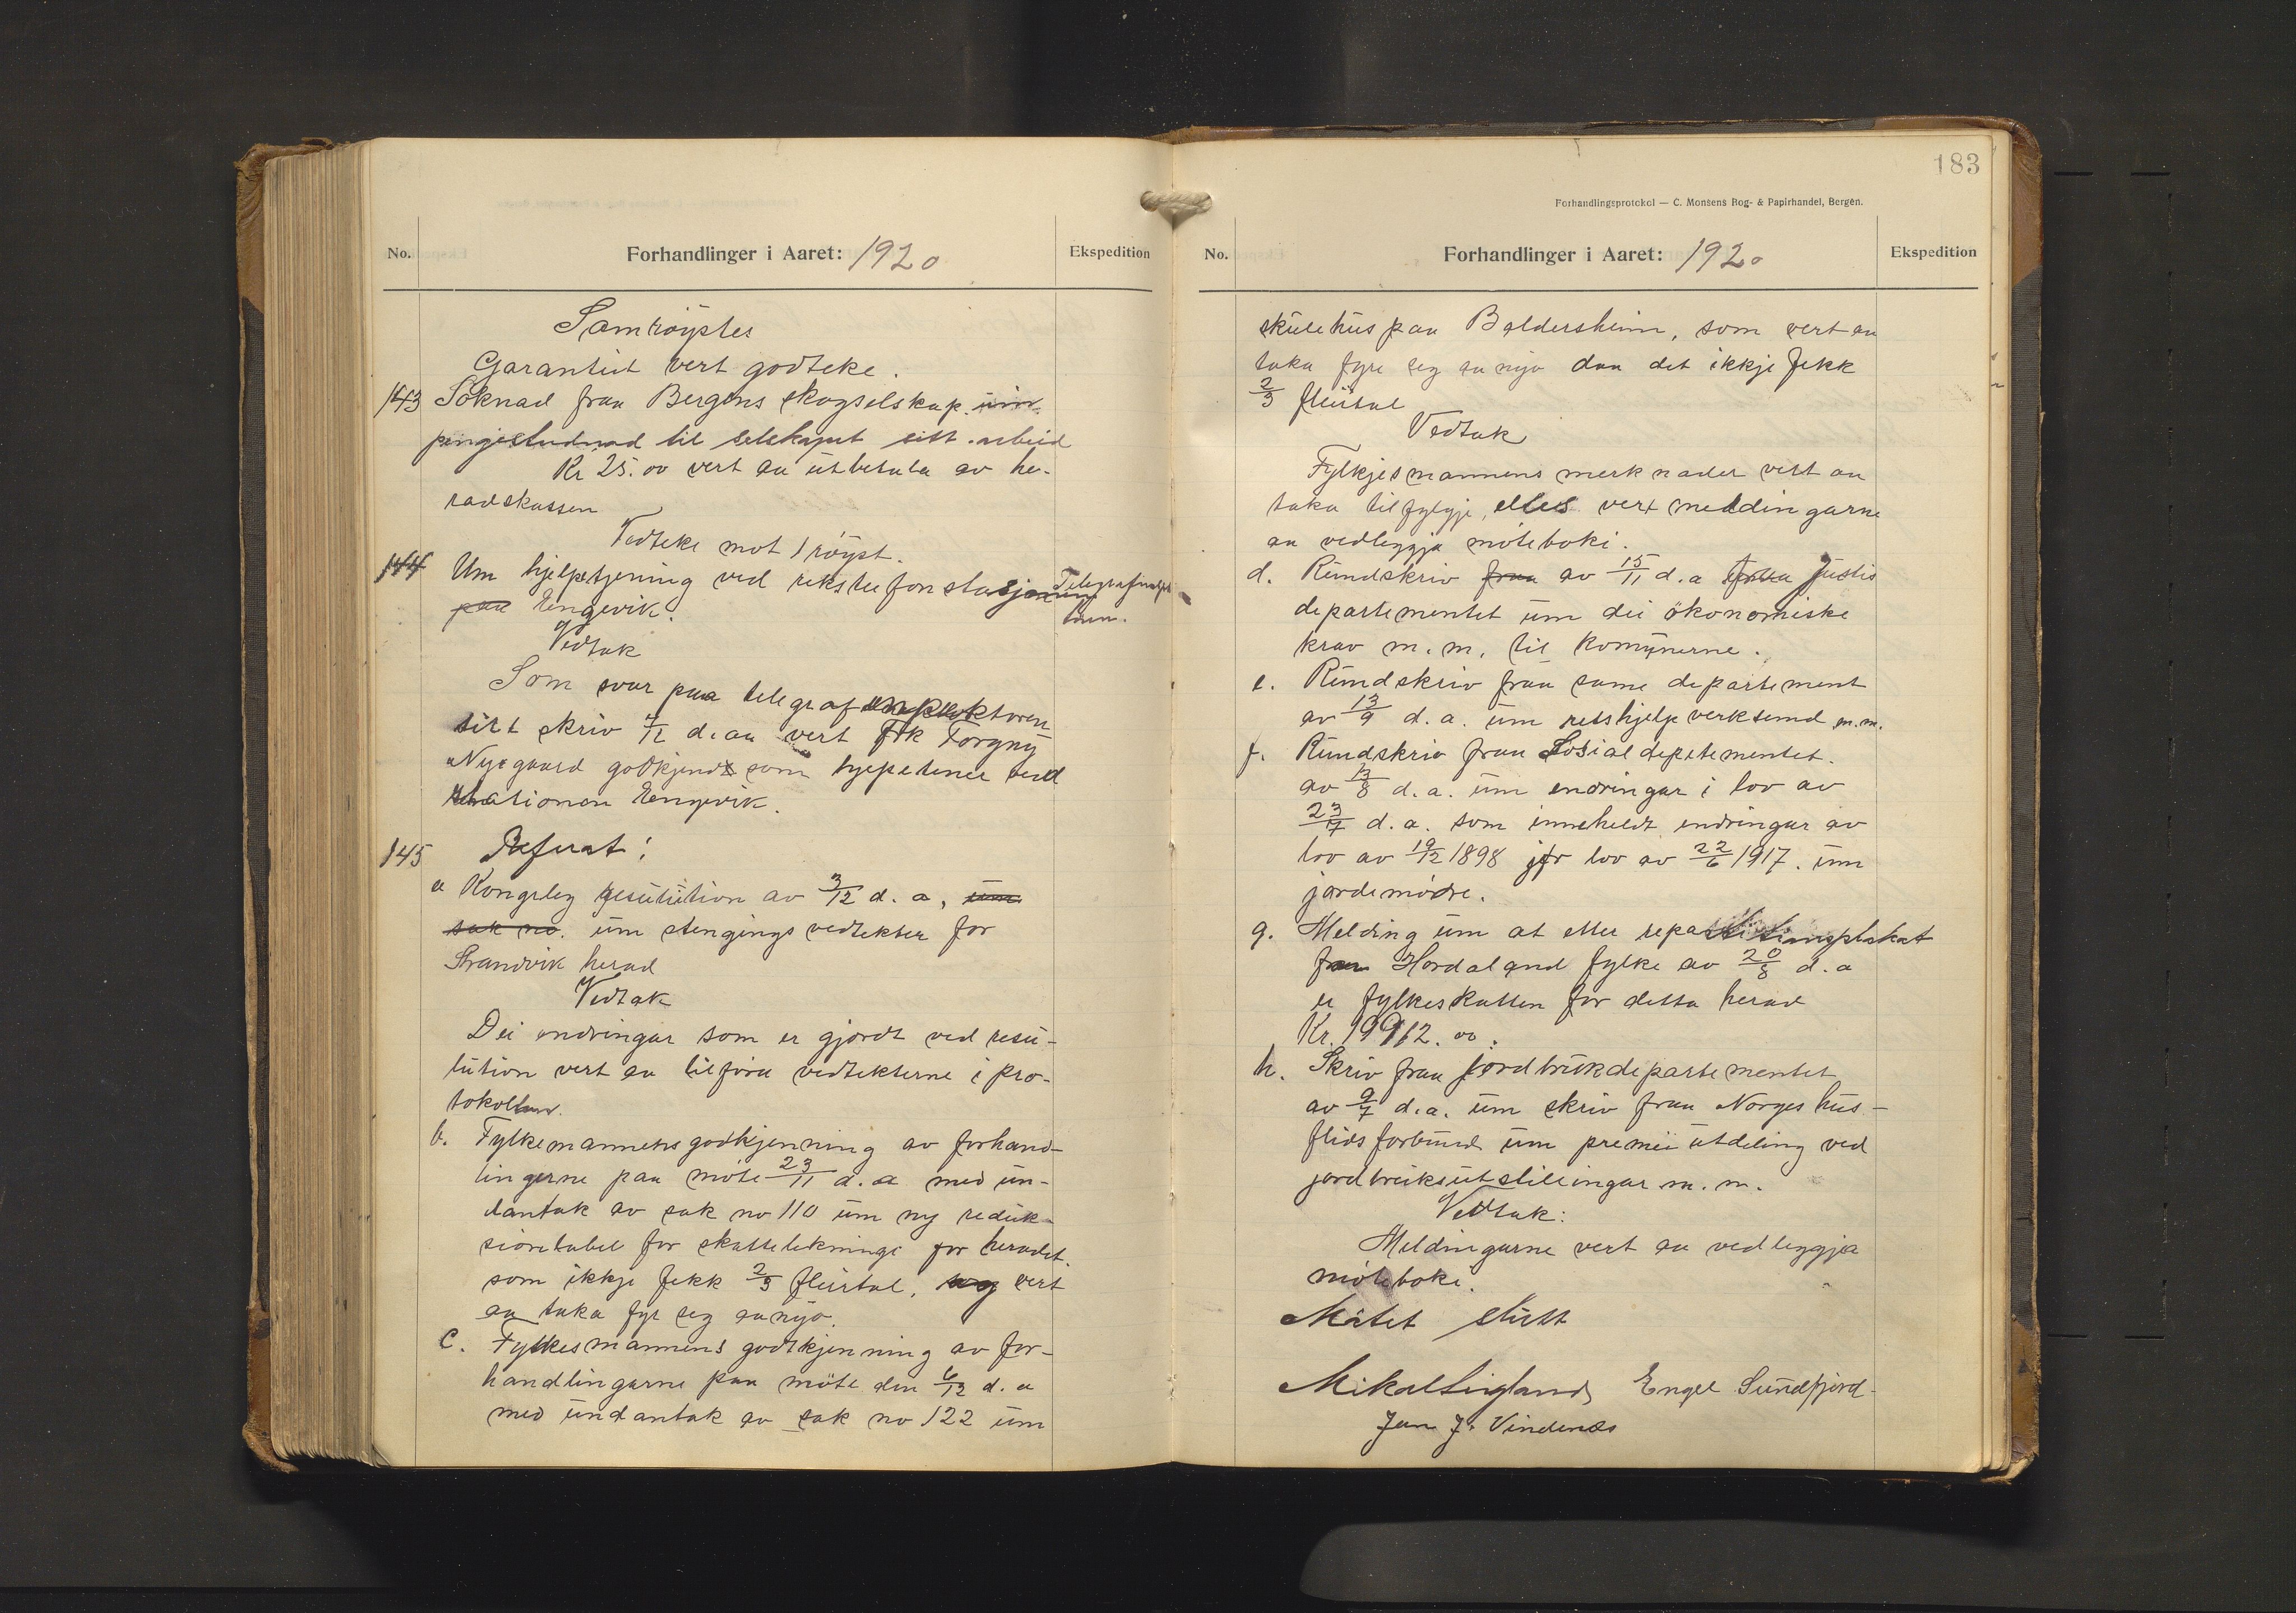 No.
Forhandlinger i Aaret: 1920
Ekspedition
Samröystes
Garantied vert godteke.
143 Söknad fraa Bergens skogselskap. um
pengestudnad til selskapet sitt arbeid
Kr 25.00 vert aa utbetala av he-
radskassen
Vedteke mot 1 röyst.
144 Um hjelpetjening ved rikstelefonstasjonen
Telegrafinspek
paa Engevik.
tören.
Vedtak
Som svar paa telegrafinspektoren
sitt skriv 4/12 d. aa vert Frk Torgny
Nysgaard godkjend som hjelpetener ved
stationen Engevik.
145 Referat:
a Kongeleg resulution av 3/12 d. a, um
sak no. um stengingsvedtekter for
Strandvik herad
Vedtak
Dei endringar som er gjordt ved resu-
lution vert aa tilföra vedtekterne i pro-
tokollen.
b. Fylkemannens godkjenning av forhand-
lingerne paa möte 23/11 d. a med un-
dantak av sak no 110 um ny reduk-
sionstabel for skattelikningi for heradet.
som ikkje fekk 2/3 fleirtal, og vert
aa taka fyr seg aa nyo.
c. Fylkesmannens godkjenning av for-
handlingarne paa möte den 6/12 d. a
med undantak av sak no 122 um
183
Forhandlingsprotokol — C. Monsens Bog- & Papirhandel, Bergen.
No.
Forhandlinger i Aaret: 1920
Ekspedition
skulehus paa Baldersheim, som vert aa
taka fyre seg aa nyo daa det ikkje fekk
2/3 fleirtal
Vedtak
Fylkjesmannens merknader vert aa
taka tilfylgje, elles vert meldingarne
aa vedleggja möteboki.
d. Rundskriv fraa av 15/11 d. a fraa Justis
departementet um dei ökonomiske
krav m. m. til Komunerne.
e. Rundskriv fraa same departement
av 13/9 d. a. um retshjelp verksemd m. m.
f. Rundskriv fraa Sosialdepetementet.
av 13/8 d. a. um endringar i lov av
23/7 d. a. som inneheldt endringar av
lov av 19/12 1898 jfr lov av 22/6 1917. um
jordemödre.
g. Melding um at etter repartitionsplakat
fraa Hordaland fylke av 20/8 d. a
er fylkeskatten for detta herad
Kr. 19912.00.
h. Skriv fraa Jordbrukdepartementet
av 9/7 d. a. um skriv fraa Norges hus-
flidsforbund um premieutdeling ved
jordbruksutstillingar m. m.
Vedtak:
Meldingarne vert aa vedleggja
möteboki.
Mötet slutt
Mikal Ligland Engel Sundfjord
Jan J. Vindenes